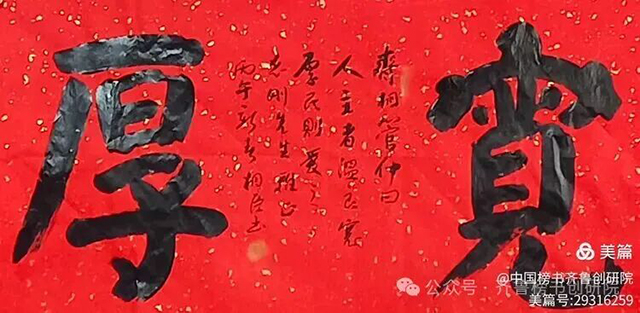 寬
厚
齊相管仲曰
人主者溫良寬
厚民則愛之
先生雅正
丙午新春
美篇
@中国榜书齐鲁创研院
公众号·齐鲁榜书创研院
美篇号:29316259